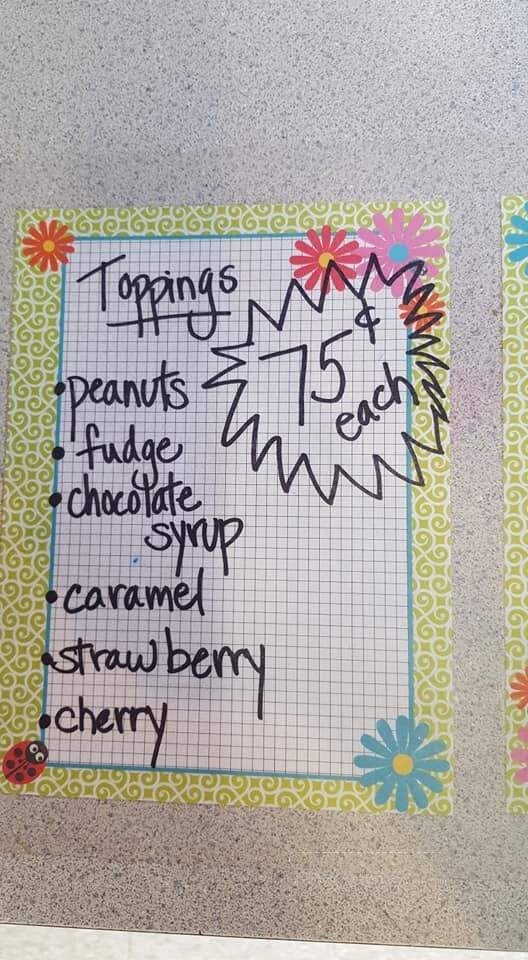 Toppings
75¢
each
• peanuts
• fudge
• chocolate
syrup
• caramel
• strawberry
• cherry